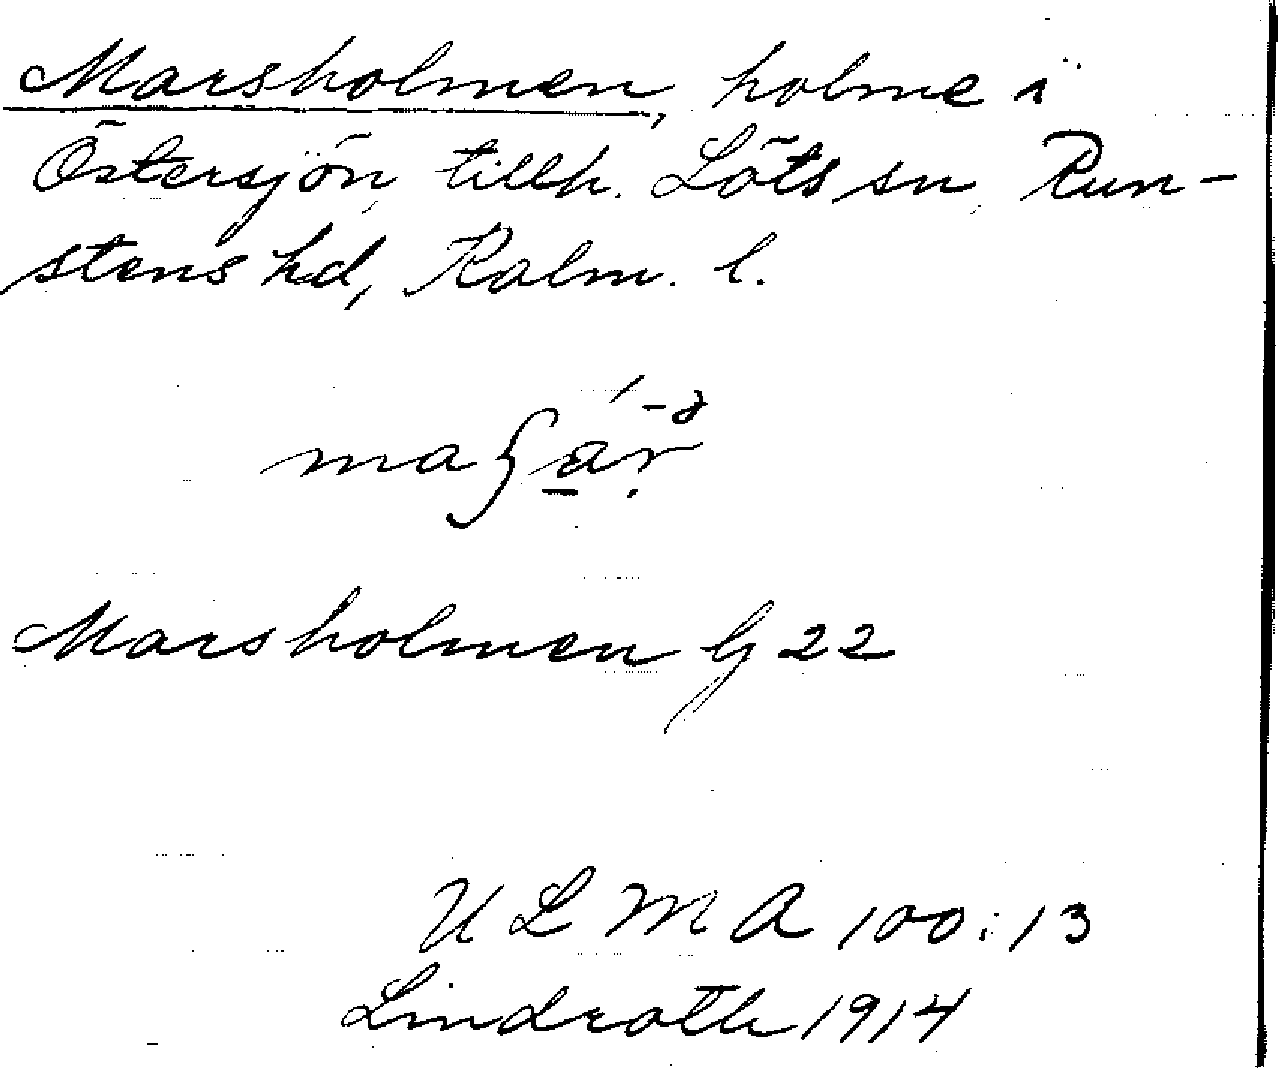 Marsholmen, holme i
Östersjön, tillh. Löts sn, Run-
stens hd, Kalm. l.
Marsholmen G 22
ULMA 100:13
Lindroth 1914